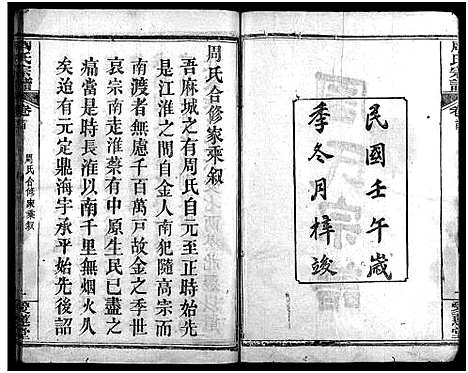 周氏宗譜
卷首
民國壬午歲
季冬月梓竣
周氏合修家乘叙
吾麻城之有周氏自元至正時始先
是江淮之間自金人南犯隨高宗而
南渡者無慮千百萬戸故金之季世
哀宗南走淮蔡有中原生民已盡之
痛當是時長淮以南千里無烟火久
矣迨有元定鼎海宇承平始先後詔
周氏宗譜
卷首
周氏合修家乘叙
一